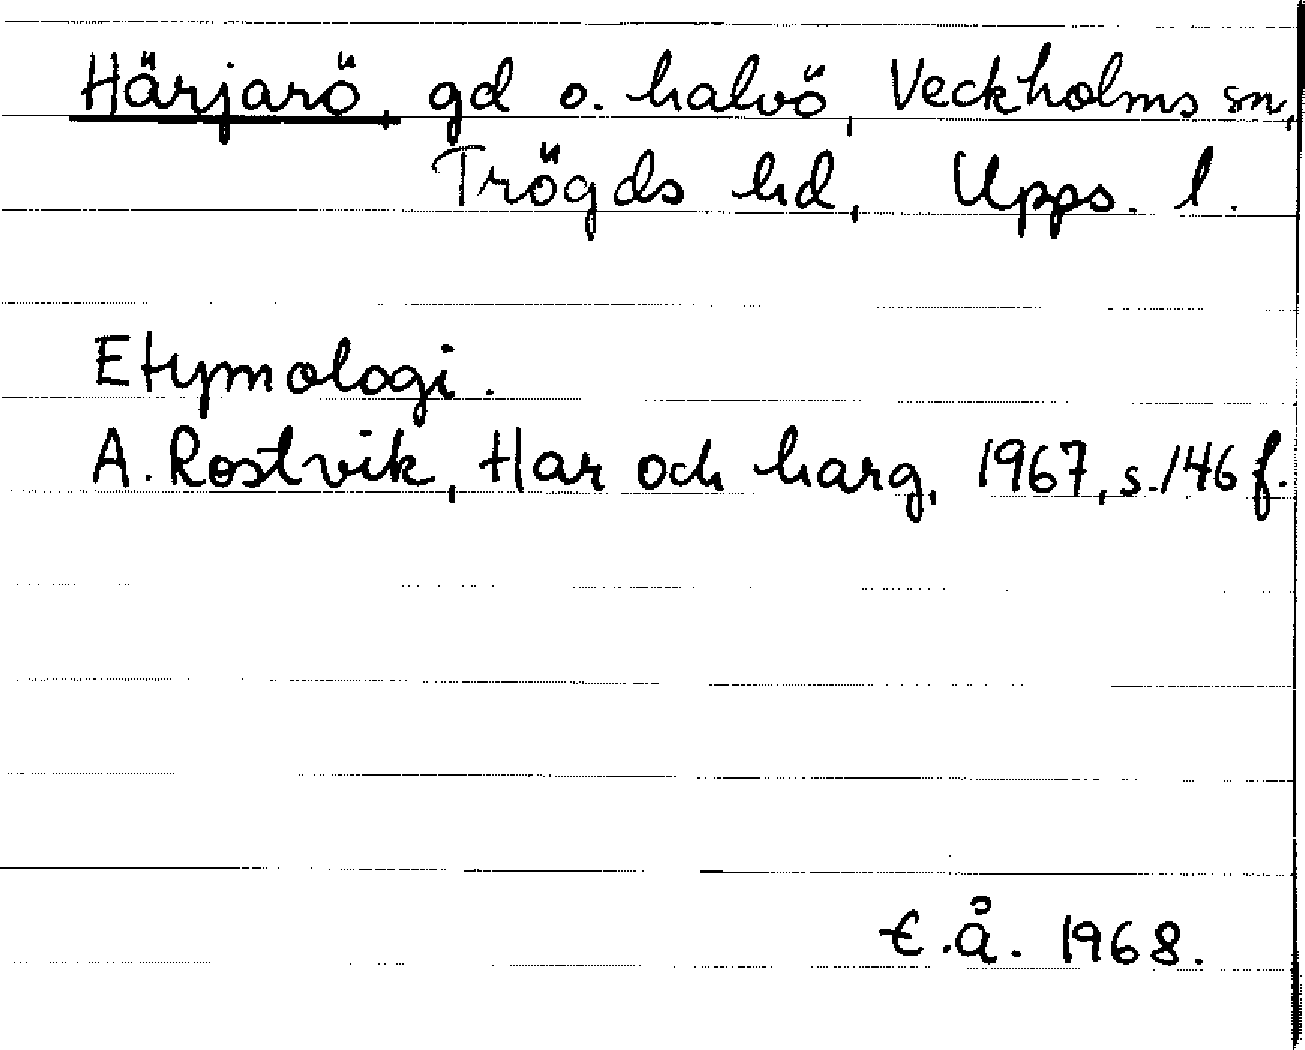 Härjarö, gd o. halvö, Veckholms sn,
Trögds hd, Upps. l.
Etymologi.
A. Rostvik, Har och harg, 1967, s. 146 f.
E.Å. 1968.